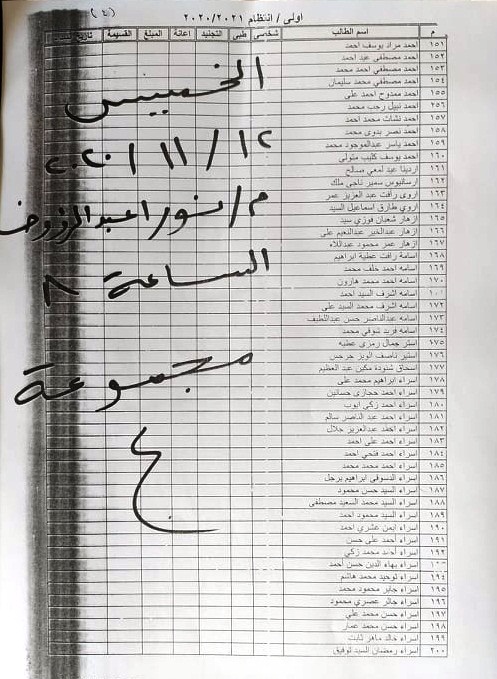 (٤)
اولى / انتظام ٢٠٢٠/٢٠٢١
م اسم الطالب شخصى طبى التجنيد اعانة المبلغ القسيمة تاريخ
١٥١ احمد مراد يوسف احمد
١٥٢ احمد مصطفي عيد احمد
١٥٣ احمد مصطفي احمد محمد
١٥٤ احمد مصطفي محمد سليمان
١٥٥ احمد ممدوح احمد على
٢٥٦ احمد نبيل رجب محمد
١٥٧ احمد نشات محمد احمد
١٥٨ احمد نصر بدوى محمد
١٥٩ احمد ياسر عبدالموجود محمد
١٦٠ احمد يوسف كليب متولى
١٦١ اردينا عيد لمعي صالح
١٦٢ ارسانيوس سمير ناجى ملك
١٦٣ اروى رأفت عبد العزيز عمر
١٦٤ اروي طارق اسماعيل السيد
١٦٥ ازهار شعبان فوزي سيد
١٦٦ ازهار عبدالخير عبدالنعيم على
١٦٧ ازهار عمر محمود عبداللاه
١٦٨ اسامة رافت عطية ابراهيم
١٦٩ اسامه احمد خلف محمد
١٧٠ اسامه احمد محمد هارون
اسامه اشرف السيد احمد
١٧٢ اسامه اشرف محمد السيد على
١٧٣ اسامه عبدالناصر حسن عبداللطيف
١٧٤ اسامه فريد شوقي محمد
١٧٥ استر جمال رمزى عطيه
١٧٦ استير ناصف الوير جرجس
١٧٧ اسحاق شنودة مكين عبد العظيم
١٧٨ اسراء ابراهيم محمد على
١٧٩ اسراء احمد حجازى حسانين
١٨٠ اسراء احمد زكي ايوب
١٨١ اسراء احمد عبد الناصر سالم
١٨٢ اسراء احمد عبدالعزيز جلال
١٨٣ اسراء احمد على احمد
١٨٤ اسراء احمد فتحي احمد
١٨٥ اسراء احمد محمد محمد
١٨٦ اسراء الدسوقى ابراهيم
١٨٧ اسراء السيد حسن محمود
١٨٨ اسراء السيد محمد السعيد مصطفى
١٨٩ اسراء السيد محمود احمد
١٩٠ اسراء ايمن عشري احمد
١٩١ اسراء أحمد على حسن
١٩٢ اسراء أحمد محمد زكي
اسراء بهاء الدين حسن احمد
١٩٤ اسراء توحيد محمد هاشم
١٩٥ اسراء جابر محمود محمد
١٩٦ اسراء جابر عصري محمود
١٩٧ اسراء حسن محمد على
١٩٨ اسراء حسن محمد عمار
١٩٩ اسراء خالد ماهر ثابت
٢٠٠ اسراء رمضان السيد توفيق
الخميس
١٢ / ١١ / ٢٠٢٠
م/ نورا عبدالرؤوف
الساعة ٨
مجموعة
ع